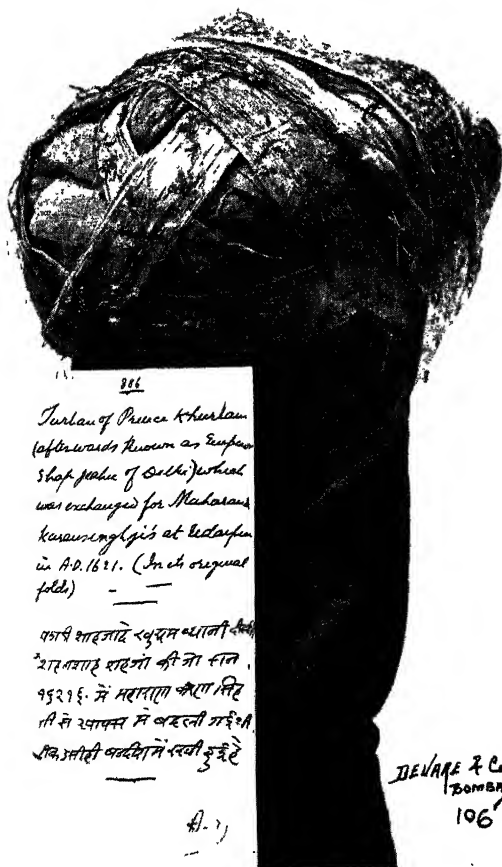 886
Turban of Prince Khurlam
(afterwards known as Emperor
Shah Jehan of Delhi) which
was exchanged for Maharana
Karansinghji's at Udaipur
in A.D. 1621. (In its original
folds)
शाहजादे खुर्रम
शाहजां की जो सन
१६२१ई. में महाराणा करण सिंह
जी से आपस में बदली गई थी
में रखी हुई है
DEVARE & Co
BOMBA
106